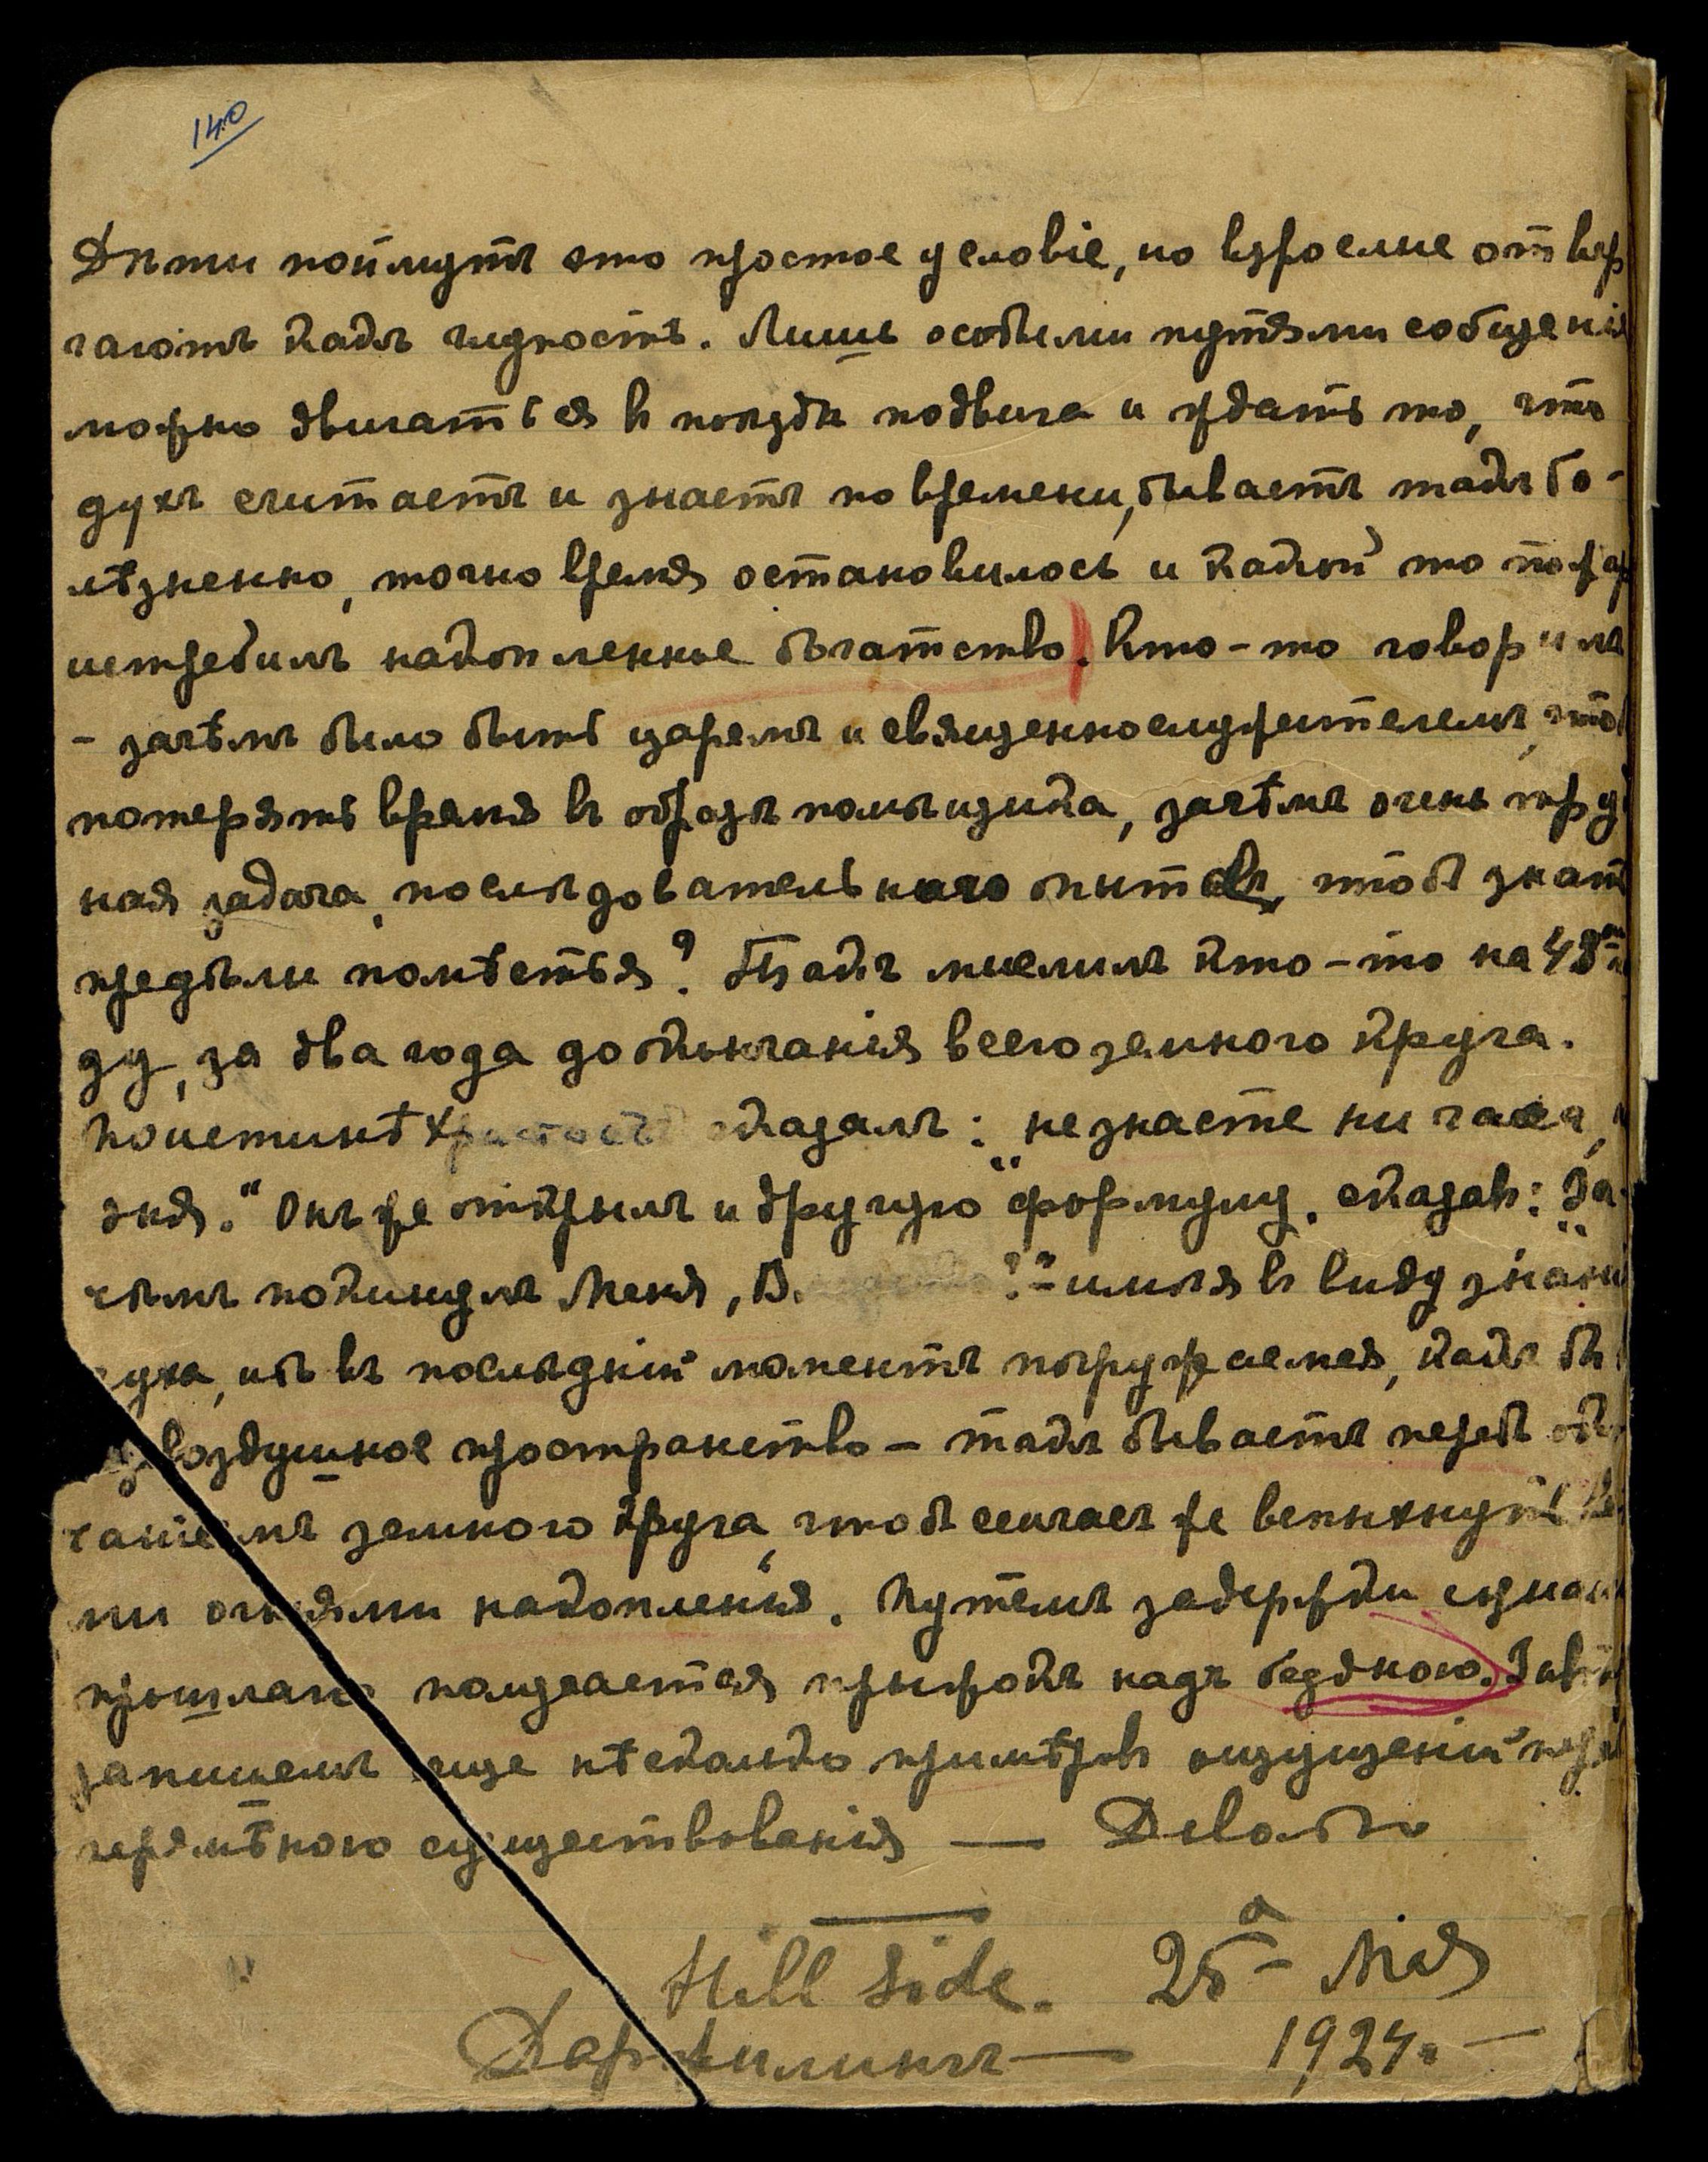 140
Дѣти поймутъ это простое условіе, но взрослые отвер
гаютъ какъ чудность. Лишь особыми путями сообщенія
можно двигаться въ поѣзде подвига и ждать то, что
духъ считаетъ и знаетъ по времени, бываетъ такъ бо-
лѣзненно, точно время остановилось и какой то пожар
истребилъ накопленное богатство. Кто-то говорилъ
- зачѣмъ было быть царемъ и священнослужителемъ, чтоб
потерять время въ образѣ помѣщика, зачѣмъ очень труд
ная задача последовательного опыта, чтоб знать
предѣлы помѣстья? Такъ мыслилъ кто-то на 48
ду, за два года до окончанія всего земного круга.
Поистинѣ Христосъ сказалъ: „не знаете ни часа,
дня." Онъ же открылъ и другую формулу, сказавъ: „За-
чѣмъ покинулъ Меня, В. ?"- имѣя въ виду знані
духа, ибо въ послѣдній моментъ погружаемся, какъ бы
воздушное пространство - такъ бываетъ передъ окон
чаніемъ земного круга, чтоб сейчасъ же вспыхнуть
ми огнями накопленія. Путемъ задержки сзнан
прошлаго получается прыжокъ надъ бездною.
запишемъ еще нѣсколько примѣровъ ощущеній
существованія — Довольно
Hill Side. 25а Мая
Дарджилингъ — 1924. —